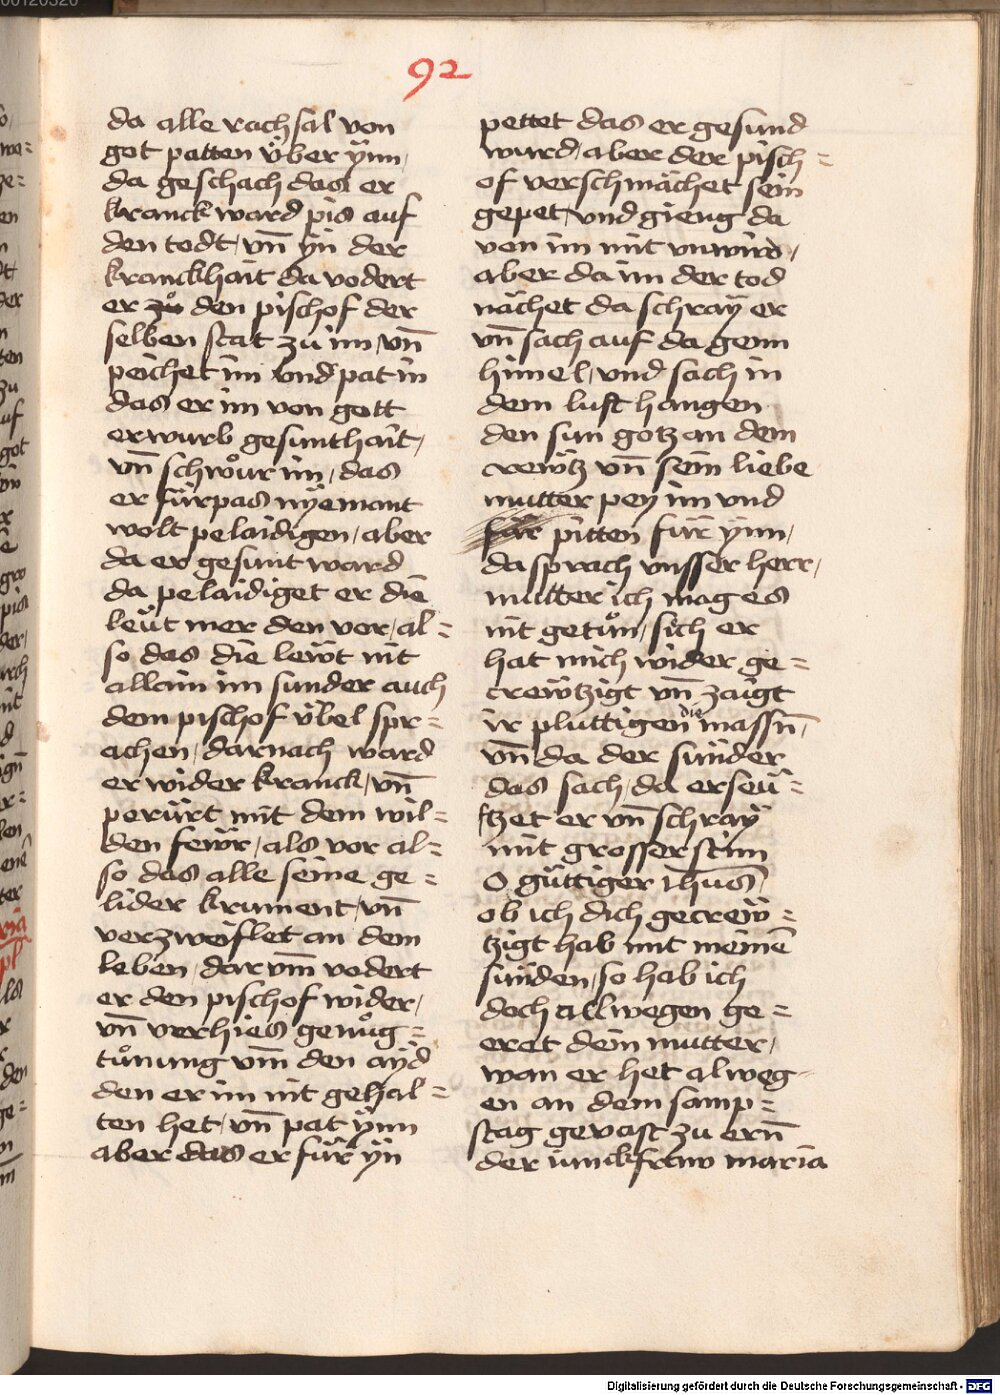 92
da alle rachsal von
got patten v̈ber ÿnn,
da geschach das er
kranck ward pis auf
den todt, vn̄ yn der
kranckhait da vodert
er den pischof der
selben stat zu im, vn̄
peichet im vnd pat in
das er im von gott
erwurb gesunthait,
vn̄ schwůr im, das
er fürpas nÿemant
wolt pelaidigen, aber
da er gesunt ward
da pelaidiget er die
leüt mer den vor, al=
so das die lewt nit
allain im sunder auch
dem pischof v̈bel spr=
achen, darnach ward
er wider kranck, vn̄
perürt mit dem wil=
den fewr, als vor al=
so das alle seine ge=
lider krument, vn̄
verzweiflet an dem
leben, darvm̄ vodert
er den pischof wider,
vn̄ verhies genůg=
tůnung vm̄ den ayd
den er im nit gehal=
ten het, vn̄ pat ÿnn
aber das er für ÿn
pettet das er gesund
wurd, aber der pisch=
of verschmächet sein
gepet, vnd gieng da
von im mit vnwird,
aber da im der tod
nächet da schraÿ er
vn̄ sach auf da genn
himel, vnd sach in
dem luft hangen
den sun gotz an dem
crewtz vn̄ sein liebe
mutter pey im vnd
für pitten für ÿnn,
da sprach vnsser herr,
mutter ich mag es
nit getůn, sich er
hat mich wider ge=
crewtzigt vn̄ zaigt
ir pluttigen die massn̄,
vn̄ da der sünder
das sach, da erseü=
ftzet er vn̄ schraÿ
mit grosser stim
O güttiger ihus̄
ob ich dich gecrew=
tzigt hab mit meinē
sünden, so hab ich
doch allwegen ge=
eret dein mutter,
wan er het alweg
en an dem samp=
stag gevast zu ern̄
der iunckfraw maria
Digitalisierung gefördert durch die Deutsche Forschungsgemeinschaft - DFG